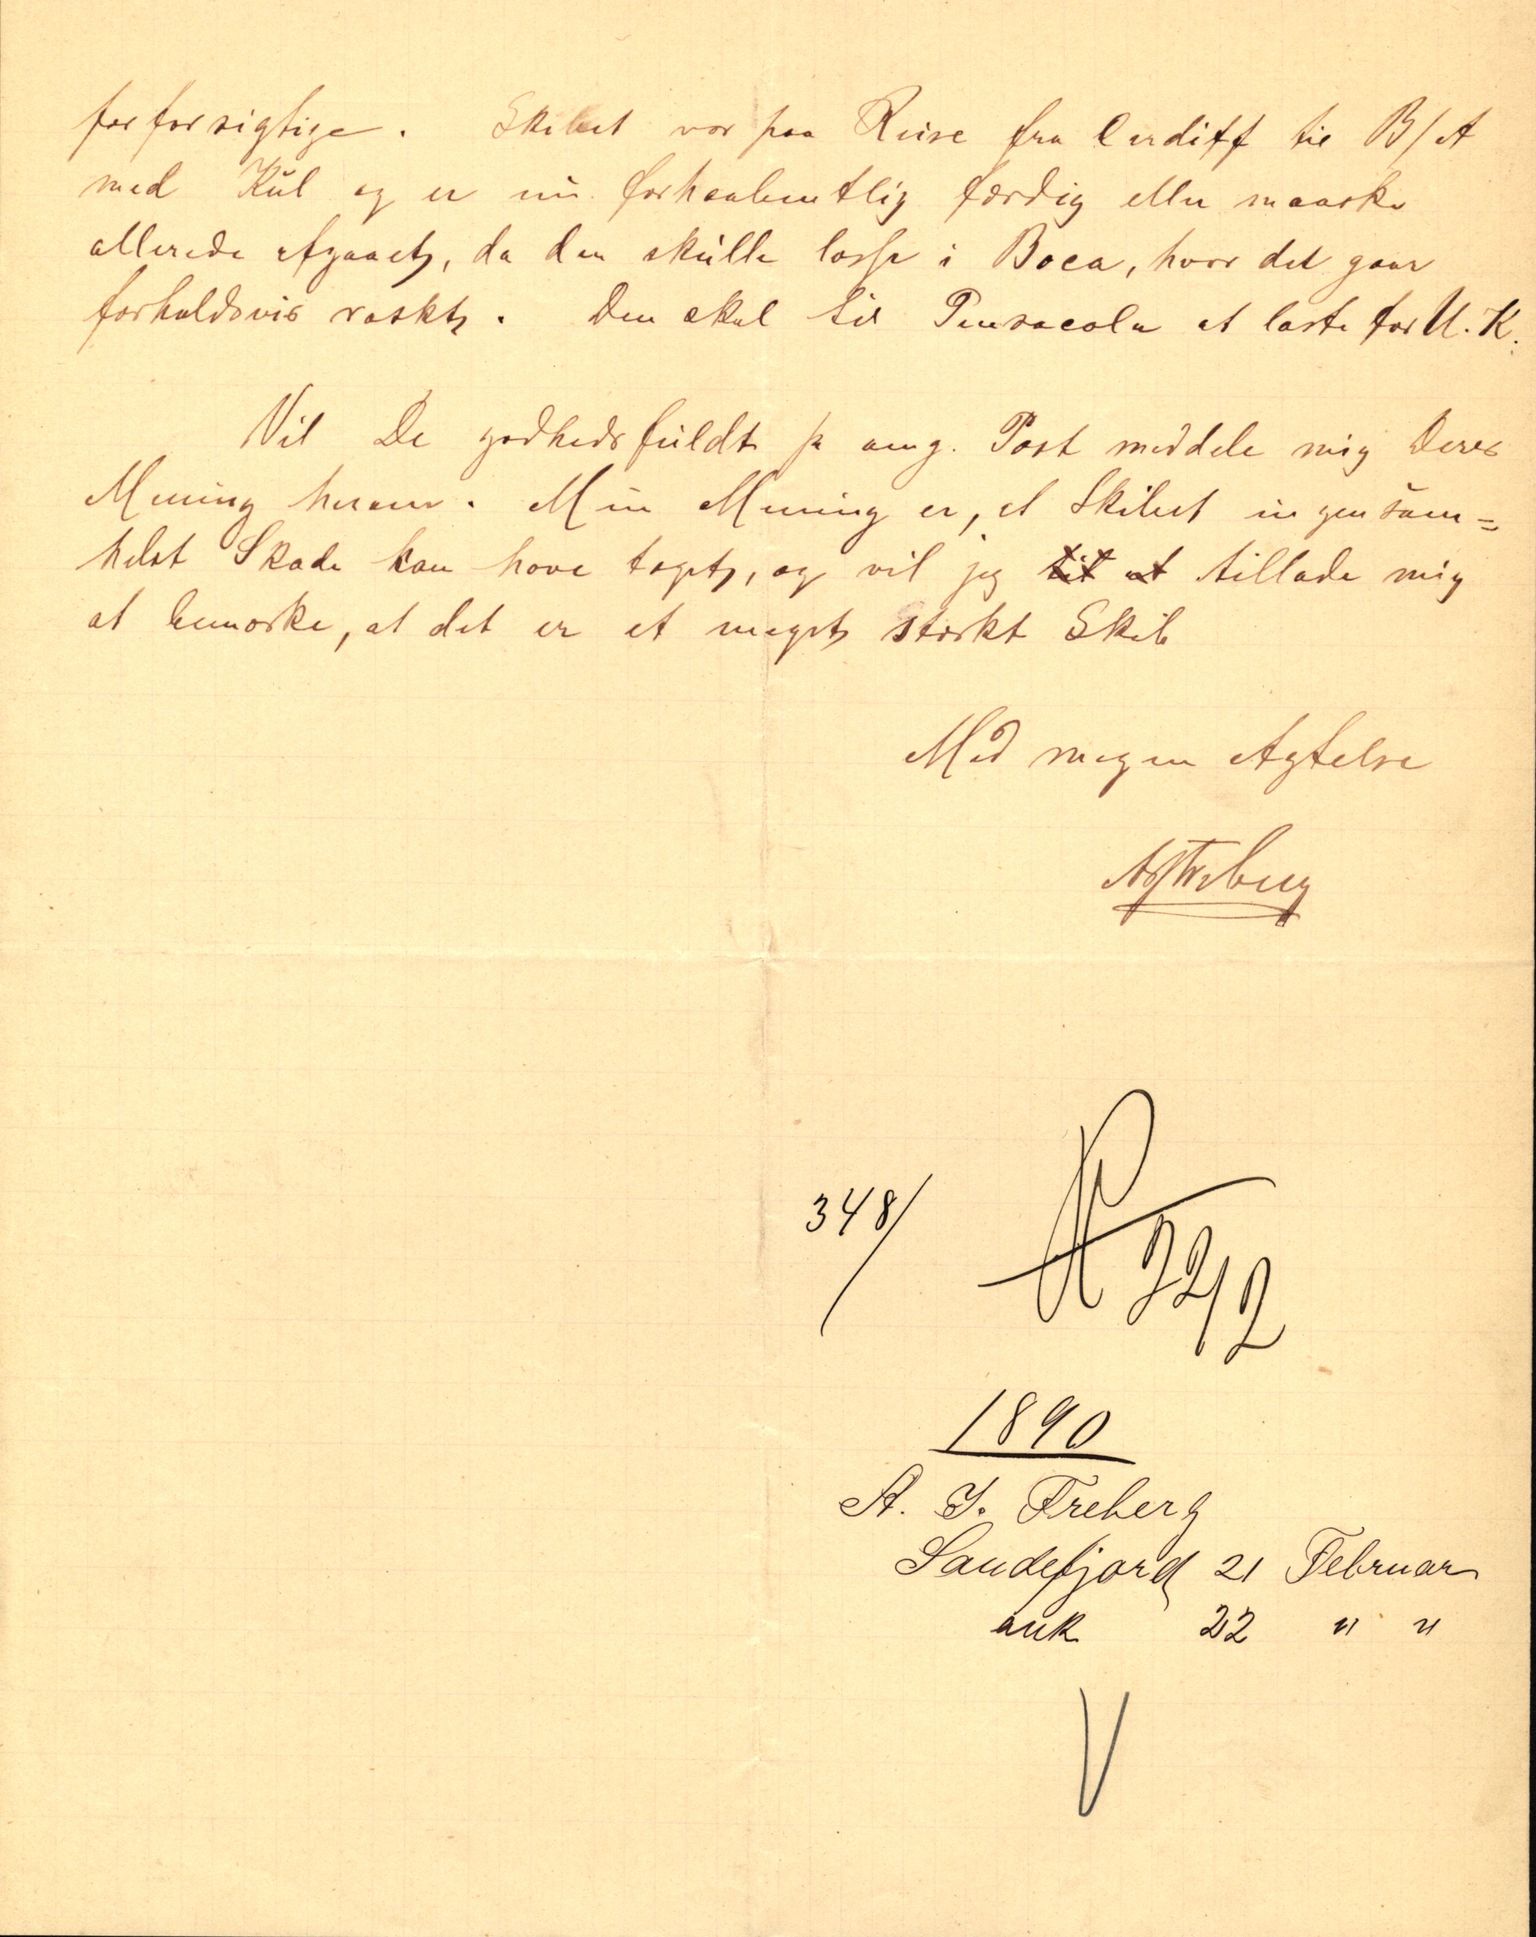 forforsigtige. Skibet var paa Reise fra Cardiff til B/A
med Kul og er nu forhaabentlig færdig eller maaske
allerede afgaaet, da den skulle losse i Boca, hvor det gaar
forholdsvis raskt. Den skal til Pensacola at laste for U.K.
Vil De godhedsfuldt pr omg. Post meddele mig Deres
Mening herom. Min Mening er, at Skibet ingensom=
helst Skade kan have taget, og vil jeg til at tillade mig
at bemærke, at det er et meget stærkt Skib
Med megen Agtelse
AJFreberg
348/
22/2
1890
A. J. Freberg
Sandefjord 21 Februar
ank 22 " "